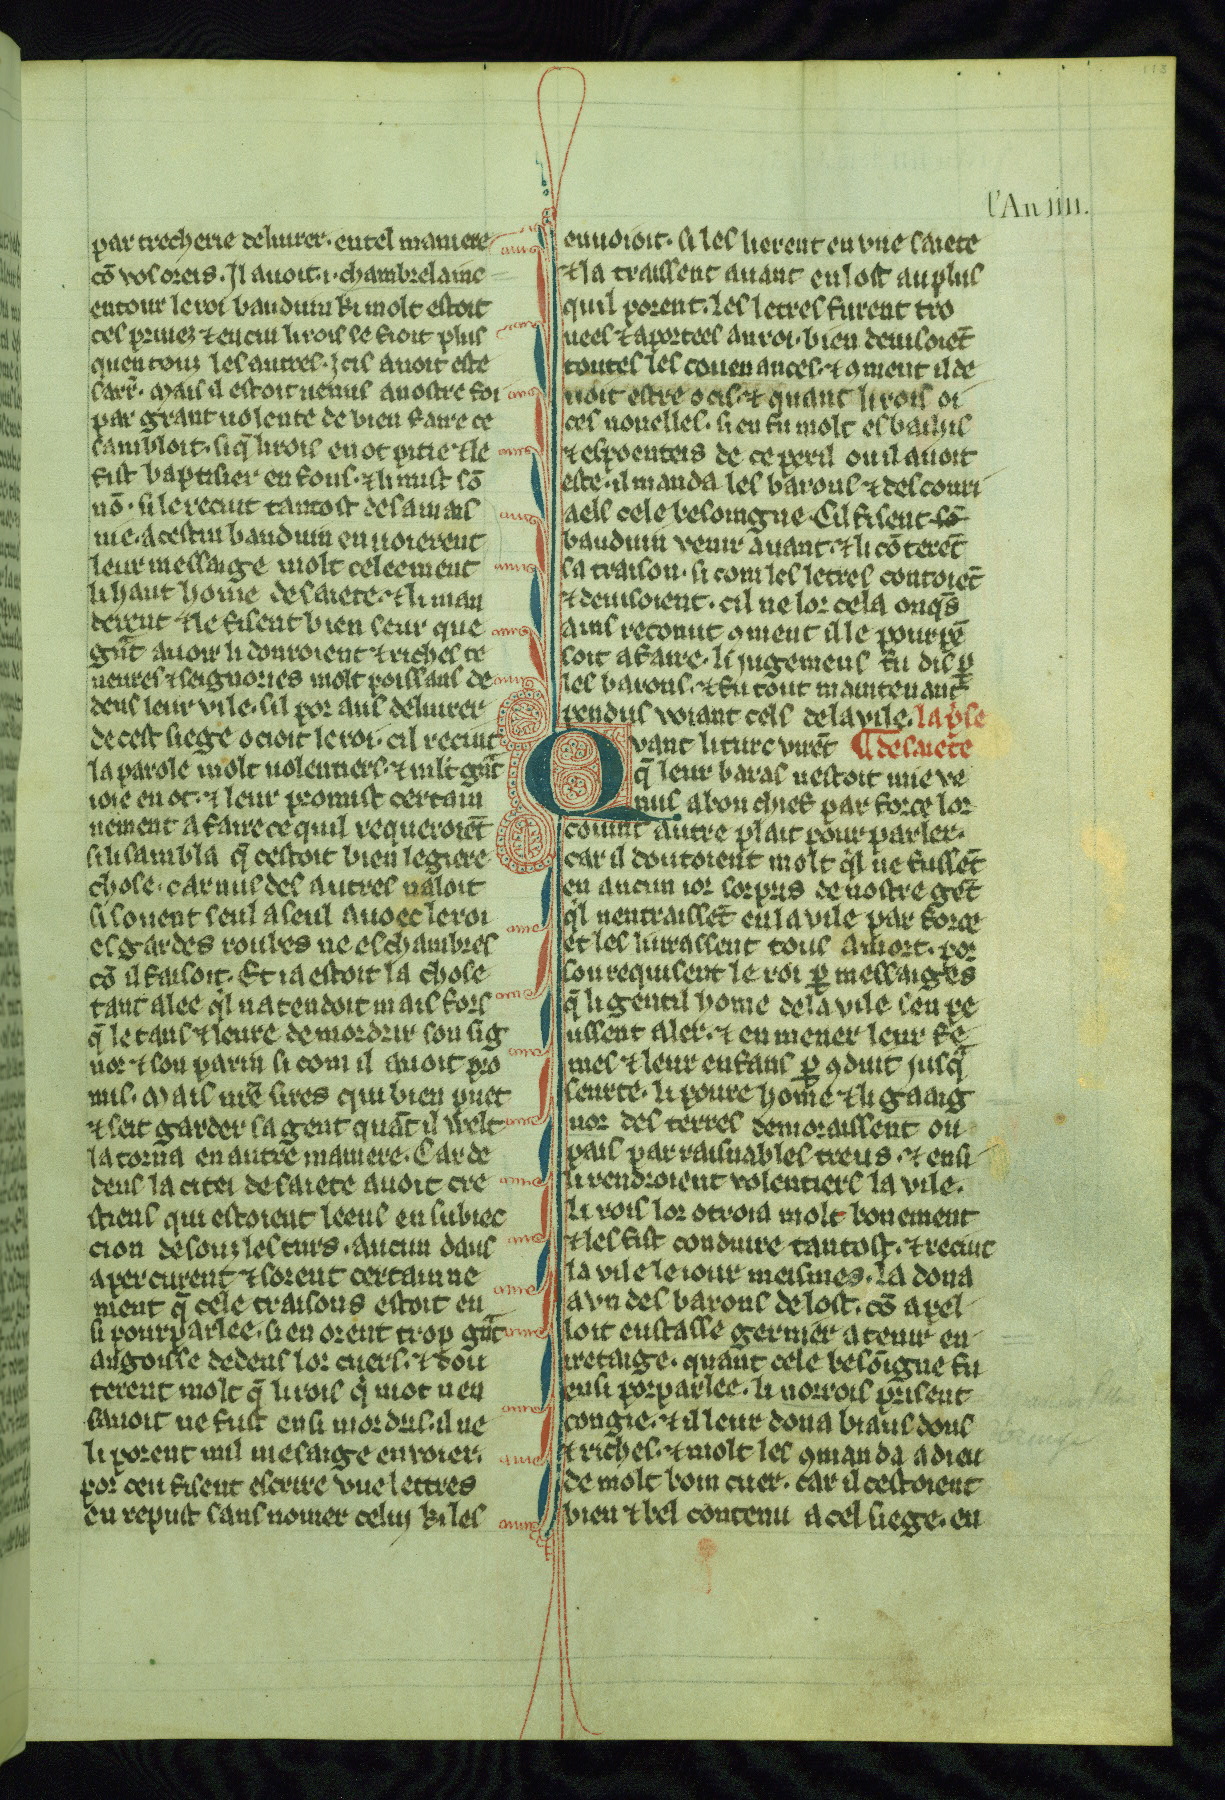 113
l'An IIII.
par trecherie deliurer. en tel maniere
cō vos orrers. Il auoit .i. chambrelainc
entour le roi bauduin ki molt estoit
ces priuez ⁊ en cui li rois se fioit plus
quen touz les autres. Icis auoit este
sarr̄. Mais il estoit uenus a nostre foi
par grant uolente de bien faire ce
sambloit. si q̄ li rois en ot pitie ⁊ le
fist baptisier en fons. ⁊ li mist sō
nō. si le reciut tantost de sa mais
nie. a cestui bauduin en uoierent
leur messaige molt celeement
li haut home de saiete. ⁊ li man
derent ⁊ le fisent bien seur que
gūt auoir li donroient ⁊ riches te
neures ⁊ seignories molt poissans de
dens leur vile. sil por aus deliurer
de cest siege ocioit le roi. cil reciut
la parole molt uolentiers. ⁊ mlt gūt
ioie en ot. ⁊ leur promist certain
nement a faire ce quil requeroiēt
si li sambla q̄ cestoit bien legiere
chose. car nus des autres naloit
si souent seul a seul auoec le roi
es gardes robes ne es chambres
cō il faisoit. Et ia estoit la chose
tant alee q̓l natendoit mais fors
q̄ le tans ⁊ leure de mordrir son sig
nor ⁊ son parin si com il auoit pro
mis. Mais nr̄e sires qui bien puet
⁊ seit garder sa gent quāt il welt
la torna en autre maniere. Car de
dens la citei de saiete auoit cre
stiens qui estoient leens en subiec
cion desouz les turs. aucun dans
apercurent ⁊ sorent certainne
ment q̄ cele traisons estoit en
si pourparlee. si en orent trop gūt
angoisse dedens lor cuers. ⁊ dou
terent molt q̄ li rois q̓ mot nen
sauoit ne fust ensi mordris. il ne
li porent nul mesaige enuoier.
por ceu fisent escrire vne lettres
en repust sans nomer celui ki les
enuoioit. si les lierent en vne saiete
⁊ la traissent auant en lost au plus
quil porent. les letres furent tro
uees ⁊ aportees au roi. bien deuisoiēt
toutes les couenances. ⁊ ꝯment il de
uoit estre ocis. ⁊ quant li rois oi
ces nouelles. si en fu molt esbahis
⁊ espoenteis de ce peril ou il auoit
este. il manda les barons ⁊ descouri
a els cele besoingne. Cil fisent sō
bauduin venir auant. ⁊ li cōterēt
sa traison. si com les letres contoiēt
⁊ deuisoient. cil ne lor cela onq̄s
ains reconut ꝯment il le pourpē
soit a faire. li jugemens fu dis ꝑ
les barons. ⁊ fu tout maintenant
pendus voiant cels de la vile. la p̓se
Qvant li turc virēt ¶ de saiete
q̄ leur baras nestoit mie ve
nus a bon chief par force lor
couint autre plait pourparler.
car il doutoient molt q̓l ne fussēt
en aucun ior sorpris de nostre gēt
q̓l nentraissēt en la vile par force
et les liurassent tous a mort. por
sou requisent le roi ꝑ messaiges
q̄ li gentil home de la vile sen pe
ussent aler. ⁊ en mener leur fe
mes ⁊ leur enfans ꝑ ꝯduit jusq̄
seurte. li poure home ⁊ li gaaig
nor des terres demoraissent ou
pais par raisnables treus. ⁊ ensi
li rendroient volentiers la vile.
li rois lor otroia molt bonement
⁊ les fist conduire tantost. ⁊ reciut
la vile le iour meismes. la dona
a vn des barons de lost. cō apel
loit eustasse gernier a tenir en
iretaige. quant cele besōigne fu
ensi porparlee. li norrois p̓rsent
congie. ⁊ il leur dona biaus dons
⁊ riches. ⁊ molt les ꝯmanda a dieu
de molt boin cuer. car il cestoient
bien ⁊ bel contenu a cel siege. en